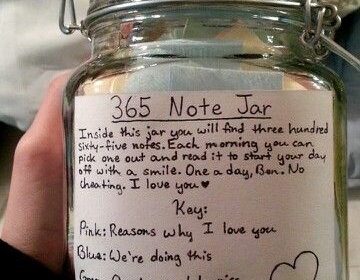 365 Note Jar
Inside this jar you will find three hundred
sixty-five notes. Each morning you can
pick one out and read it to start your day
off with a smile. One a day, Ben. No
cheating. I love you ♥
Key:
Pink: Reasons why I love you
Blue: We're doing this